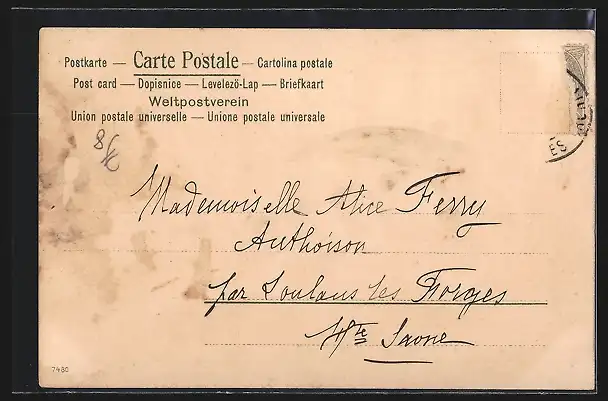 Postkarte — Carte Postale — Cartolina postale
Post card — Dopisnice — Levelező-Lap — Briefkaart
Weltpostverein
Union postale universelle — Unione postale universale
Mademoiselle Alice Ferry
Authoison
par Loulans les Forges
Hte Saone
7480